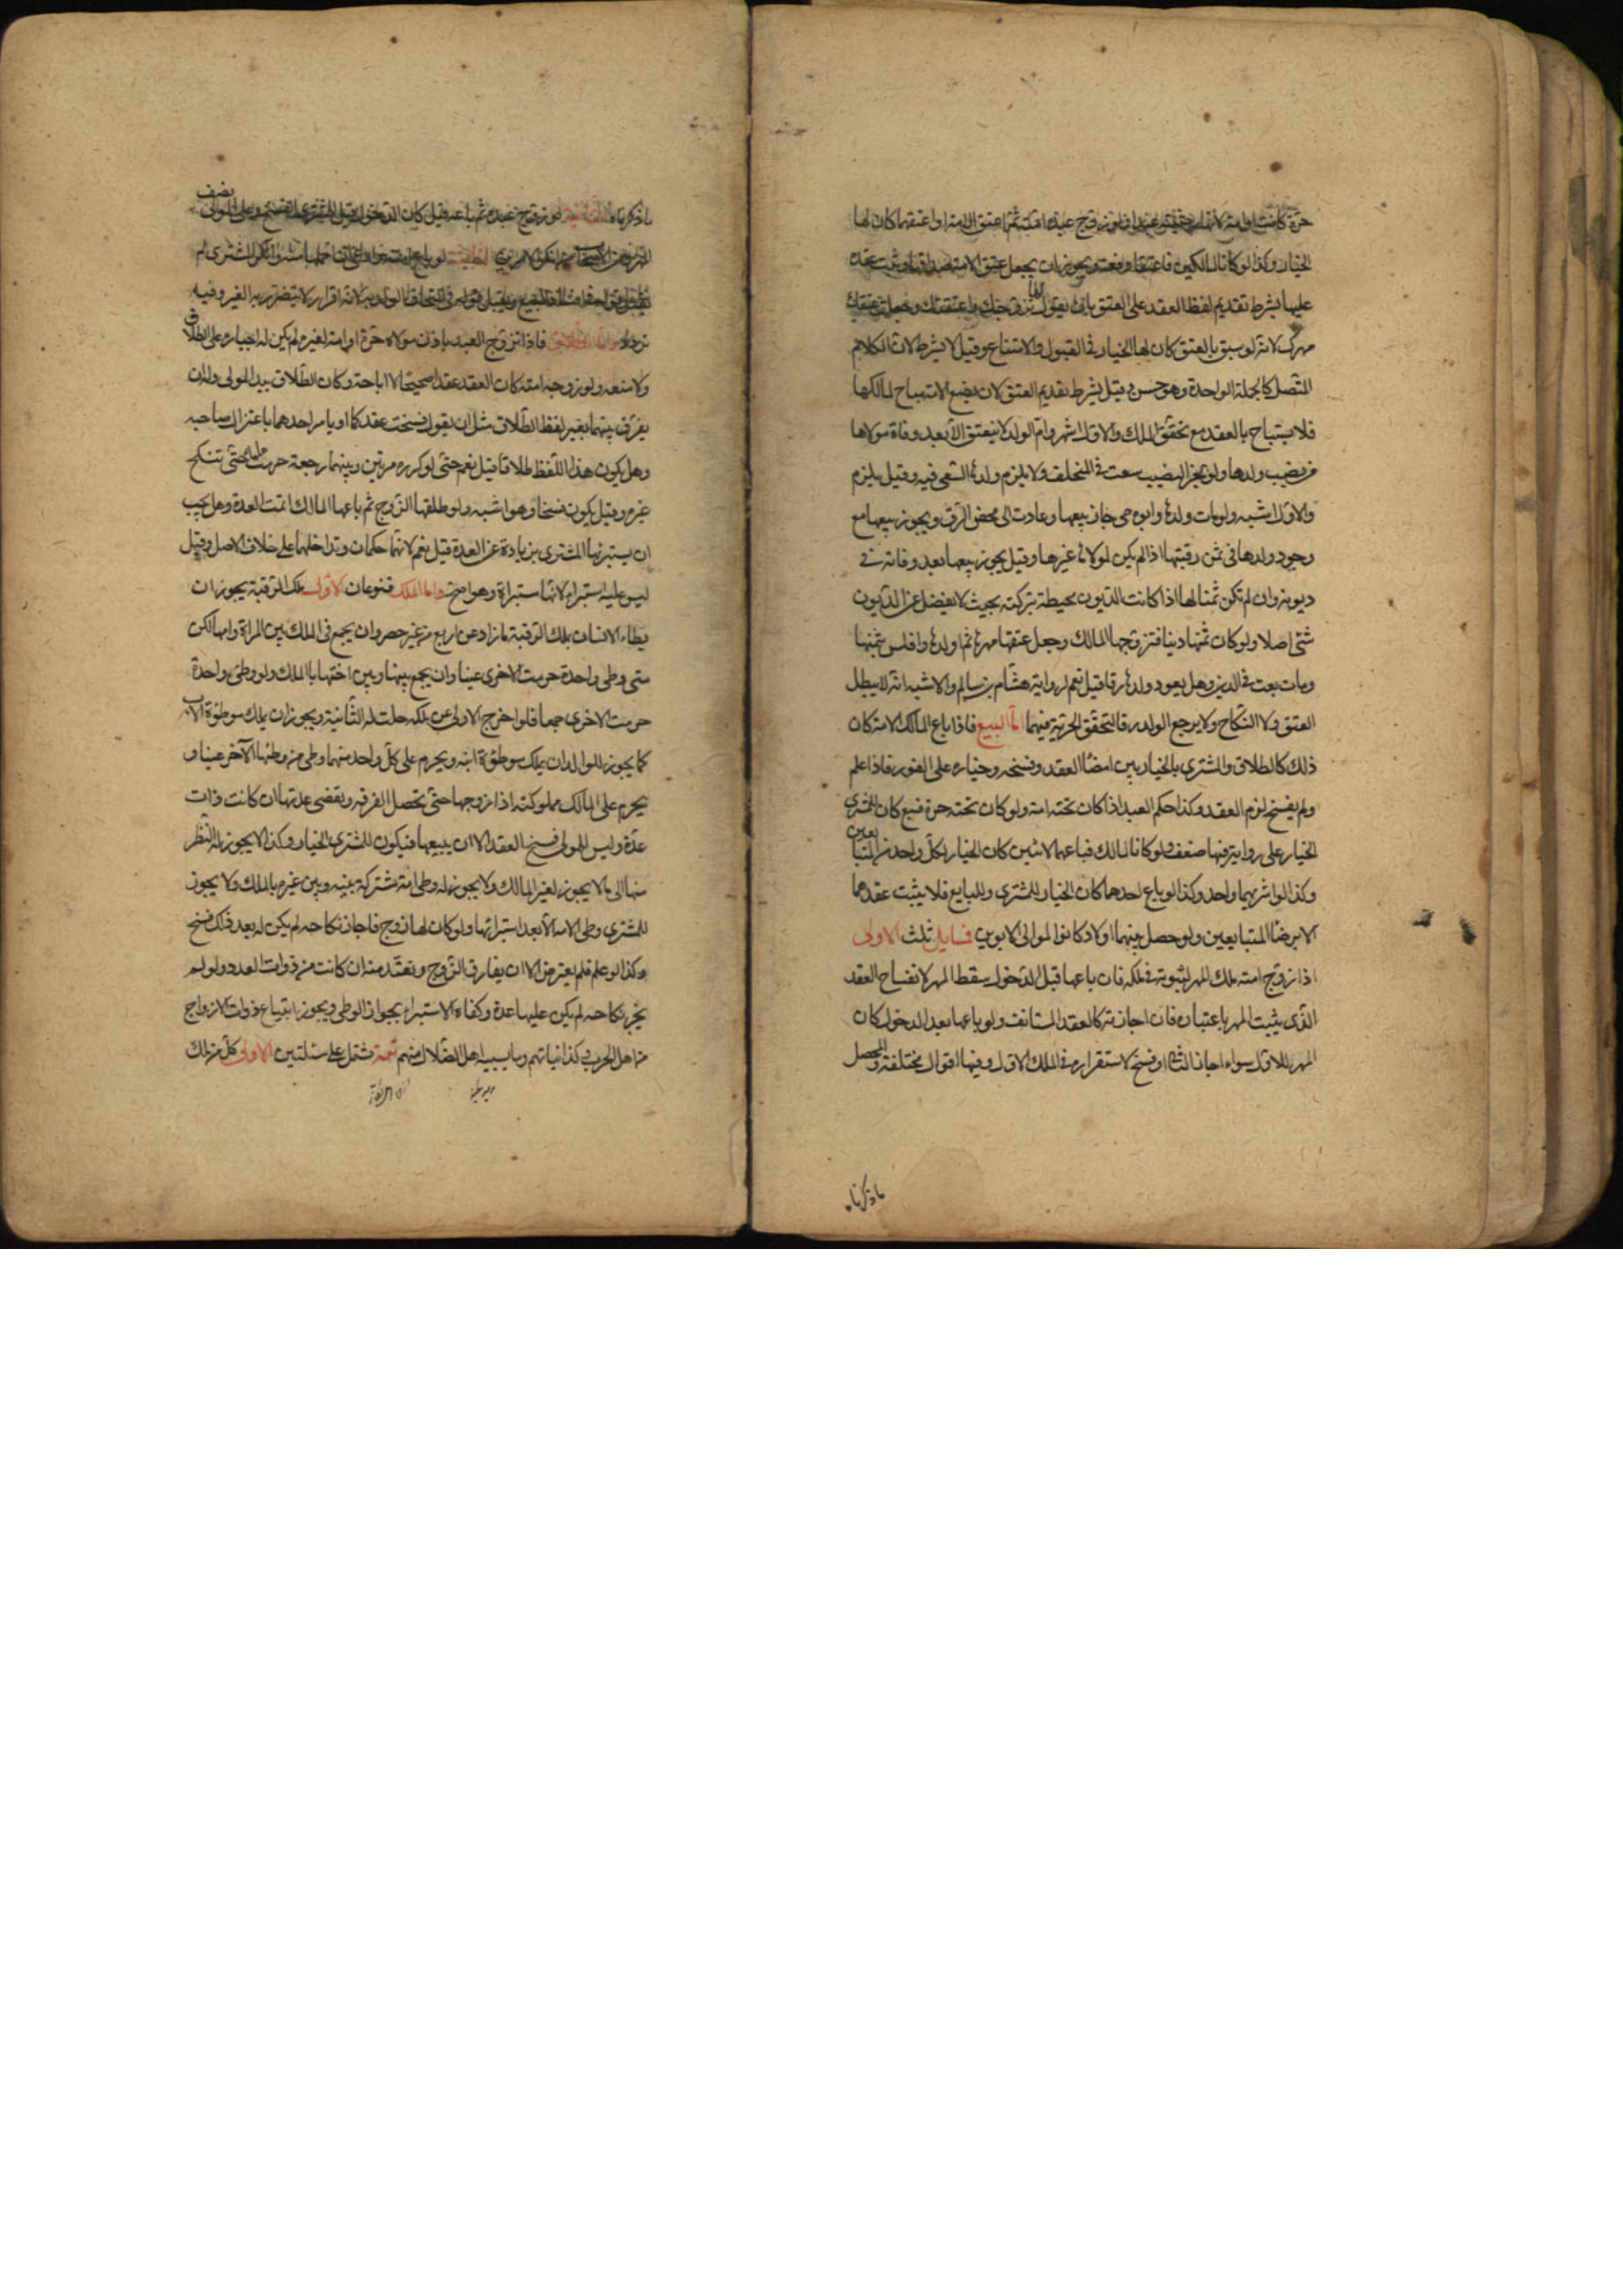 حرة كانت او امة لانها رضيته عبدا فلو زوج عبده امته ثم اعتق الامة او اعتقهما كان لها
الخيار وكذا لو كانا لمالكين فاعتقا دفعة ويجوز ان يجعل عتق الامة صداقها ويثبت عقده
عليها بشرط تقديم لفظ العقد على العتق بان يقول لها تزوجتك واعتقتك وجعلت عتقك
مهرك لانه لو سبق بالعتق كان لها الخيار في القبول والامتناع وقيل لا يشترط لان الكلام
المتصل كالجملة الواحدة وهو حسن وقيل يشترط تقديم العتق لان بضع الامة مباح لمالكها
فلا يستباح بالعقد مع تحقق الملك والاول اشهر وام الولد لا ينعتق الا بعد وفاة مولاها
من نصيب ولدها ولو عجز النصيب سعت في المتخلف ولا يلزم ولدها السعي فيه وقيل يلزم
والاول اشبه ولو مات ولدها وابوه حي جاز بيعها وعادت الى محض الرق ويجوز بيعها مع
وجود ولدها في ثمن رقبتها اذا لم يكن لمولاها غيرها وقيل يجوز بيعها بعد وفاته في
ديونه وان لم تكن ثمنا لها اذا كانت الديون محيطة بتركته بحيث لا يفضل عن الديون
شئ اصلا ولو كان ثمنها دينا فتزوجها المالك وجعل عتقها مهرها ثم اولدها وافلس بثمنها
ومات بيعت في الدين وهل يعود ولدها رقا قيل نعم لرواية هشام بن سالم والاشبه انه لا يبطل
العتق ولا النكاح ولا يرجع الولد رقا لتحقق الحرية فيهما اما البيع فاذا باع المالك الامة كان
ذلك كالطلاق والمشتري بالخيار بين امضاء العقد وفسخه وخياره على الفور فاذا علم
ولم يفسخ لزم العقد وكذا حكم العبد اذا كان تحته امة ولو كان تحته حرة فبيع كان للمشتري
الخيار على رواية فيها ضعف ولو كانا لمالك فباعهما لاثنين كان الخيار لكل واحد من المتبايعين
وكذا لو اشتريهما واحد وكذا لو باع احدهما كان الخيار للمشتري وللبايع فلا يثبت عقدهما
الا برضا المتبايعين ولو حصل بينهما اولاد كانوا لموالي الابوين فسايل ثلث الاولى
اذا زوج امته ملك المهر لثبوته في ملكه فان باعها قبل الدخول سقط المهر لانفساخ العقد
الذي يثبت المهر باعتباره فان اجازته كالعقد المستانف ولو باعها بعد الدخول كان
المهر للاول سواء اجاز الثاني او فسخ لاستقراره في الملك الاول وفيها اقوال مختلفة والمحصل
ما ذكرناه
ما ذكرناه الثانية لو زوج عبده ثم باعه قبل كان الدخول قبل للمشتري الفسخ وعلى المولى نصف
المهر ومن الاصحاب من انكر الامرين الثالثة لو باع امته وادعى ان حملها منه وانكر المشتري لم
يقبل قوله في فساد البيع ويقبل في التحاق الولد به لانه اقرار لا يتضرر به الغير وفيه
تردد واما الطلاق فاذا تزوج العبد باذن مولاه حرة او امة لغيره لم يكن له اجباره على الطلاق
ولا منعه ولو زوجه امته كان العقد عقدا صحيحا لا اباحة وكان الطلاق بيد المولى وله ان
يفرق بينهما بغير لفظ الطلاق مثل ان يقول فسخت عقدكما او يامر احدهما باعتزال صاحبه
وهل يكون هذا اللفظ طلاقا قيل نعم حتى لو كرره مرتين وبينهما رجعة حرمت عليه حتى تنكح
غيره وقيل يكون فسخا وهو اشبه ولو طلقها الزوج ثم باعها المالك اتمت العدة وهل يجب
ان يستبرئها المشتري بزيادة عن العدة قيل نعم لانهما حكمان وتداخلهما على خلاف الاصل وقيل
ليس عليه استبراء لانها مستبراة وهو اصح واما الملك فنوعان الاول ملك الرقبة يجوز ان
يطاء الانسان بملك الرقبة ما زاد عن اربع من غير حصر وان يجمع في الملك بين المراة وامها لكن
متى وطئ واحدة حرمت الاخرى عينا وان يجمع بينها وبين اختها بالملك ولو وطئ واحدة
حرمت الاخرى جمعا فلو اخرج الاولى عن ملكه حلت له الثانية ويجوز ان يملك موطؤة الاب
كما يجوز للوالد ان يملك موطؤة ابنه ويحرم على كل واحد منهما وطى من وطئها الآخر عينا و
يحرم على المالك مملوكته اذا زوجها حتى تحصل الفرقة وتقضى عدتها ان كانت ذات
عدة وليس للمولى فسخ العقد الا ان يبيعها فيكون للمشتري الخيار وكذا لا يجوز له النظر
منها الى ما لا يجوز لغير المالك ولا يجوز له وطى امة مشتركة بينه وبين غيره بالملك ولا يجوز
للمشتري وطى الامة الا بعد استبرائها ولو كان لها زوج فاجاز نكاحه لم يكن له بعد ذلك فسخ
وكذا لو علم فلم يعترض الا ان يفارق الزوج وتعتد منه ان كانت من ذوات العدد ولو لم
يجز نكاحه لم يكن عليها عدة وكفاه الاستبراء بجواز الوطى ويجوز ابتياع ذوات الازواج
من اهل الحرب وكذا بناتهم وما يسبيه اهل الضلال منهم تتمة تشتمل على مسئلتين الاولى كل من ملك